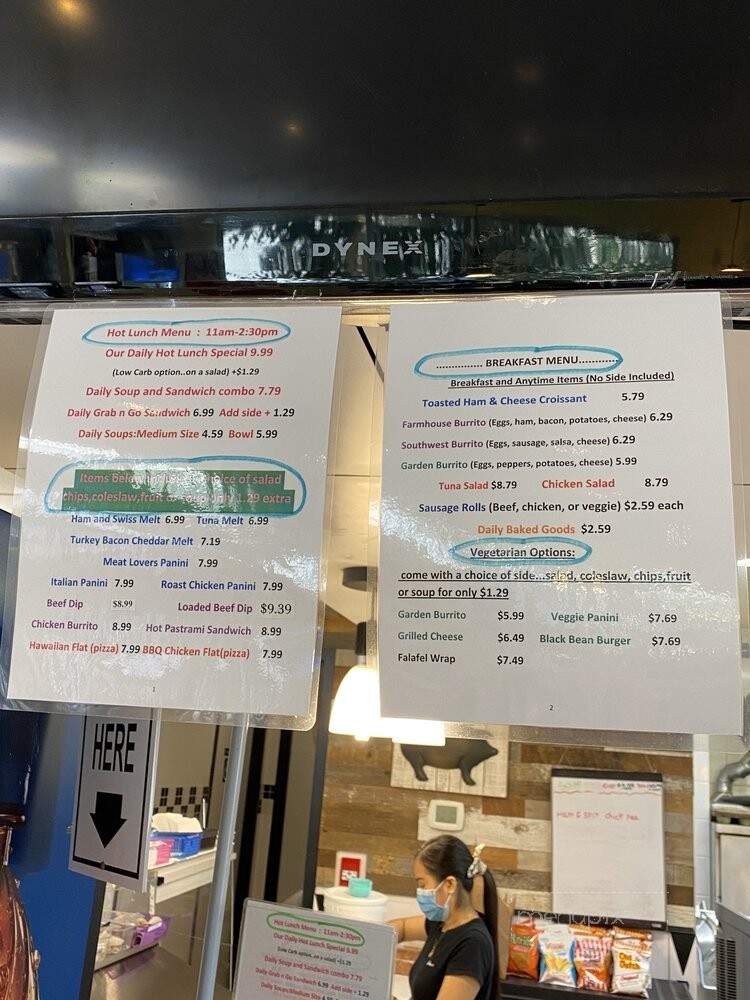 DYNEX
Hot Lunch Menu : 11am-2:30pm
Our Daily Hot Lunch Special 9.99
(Low Carb option..on a salad) +$1.29
Daily Soup and Sandwich combo 7.79
Daily Grab n Go Sandwich 6.99 Add side + 1.29
Daily Soups:Medium Size 4.59 Bowl 5.99
Items below include choice of salad
chips,coleslaw,fruit or soup only 1.29 extra
Ham and Swiss Melt 6.99 Tuna Melt 6.99
Turkey Bacon Cheddar Melt 7.19
Meat Lovers Panini 7.99
Italian Panini 7.99 Roast Chicken Panini 7.99
Beef Dip $8.99 Loaded Beef Dip $9.39
Chicken Burrito 8.99 Hot Pastrami Sandwich 8.99
Hawaiian Flat (pizza) 7.99 BBQ Chicken Flat(pizza) 7.99
1
............... BREAKFAST MENU............
Breakfast and Anytime Items (No Side Included)
Toasted Ham & Cheese Croissant 5.79
Farmhouse Burrito (Eggs, ham, bacon, potatoes, cheese) 6.29
Southwest Burrito (Eggs, sausage, salsa, cheese) 6.29
Garden Burrito (Eggs, peppers, potatoes, cheese) 5.99
Tuna Salad $8.79 Chicken Salad 8.79
Sausage Rolls (Beef, chicken, or veggie) $2.59 each
Daily Baked Goods $2.59
Vegetarian Options:
come with a choice of side...salad, coleslaw, chips,fruit
or soup for only $1.29
Garden Burrito $5.99 Veggie Panini $7.69
Grilled Cheese $6.49 Black Bean Burger $7.69
Falafel Wrap $7.49
2
HERE
Hot Lunch Menu : 11am-2:30pm
Our Daily Hot Lunch Special 9.99
(Low Carb option, on a salad) +$1.29
Daily Soup and Sandwich combo 7.79
Daily Grab n Go Sandwich 6.99 Add side + 1.29
Daily Soups:Medium Size
Old Dutch
menupix